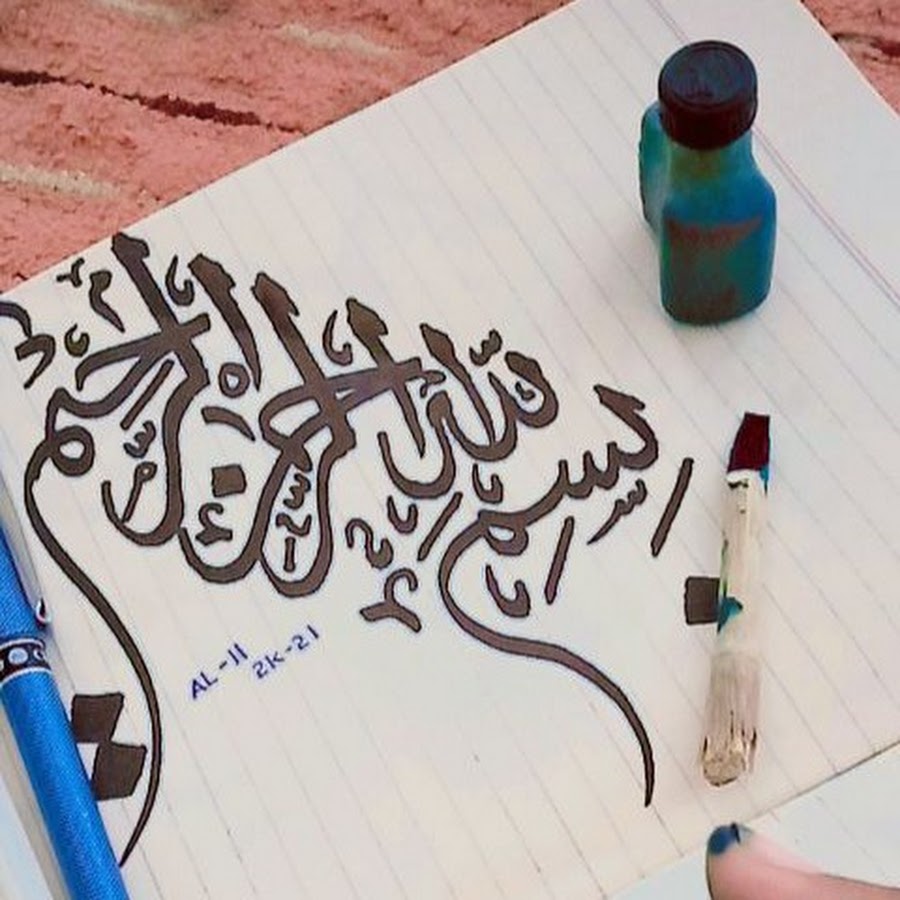 بسم الله الرحمن الرحيم
AL-11
2K-21